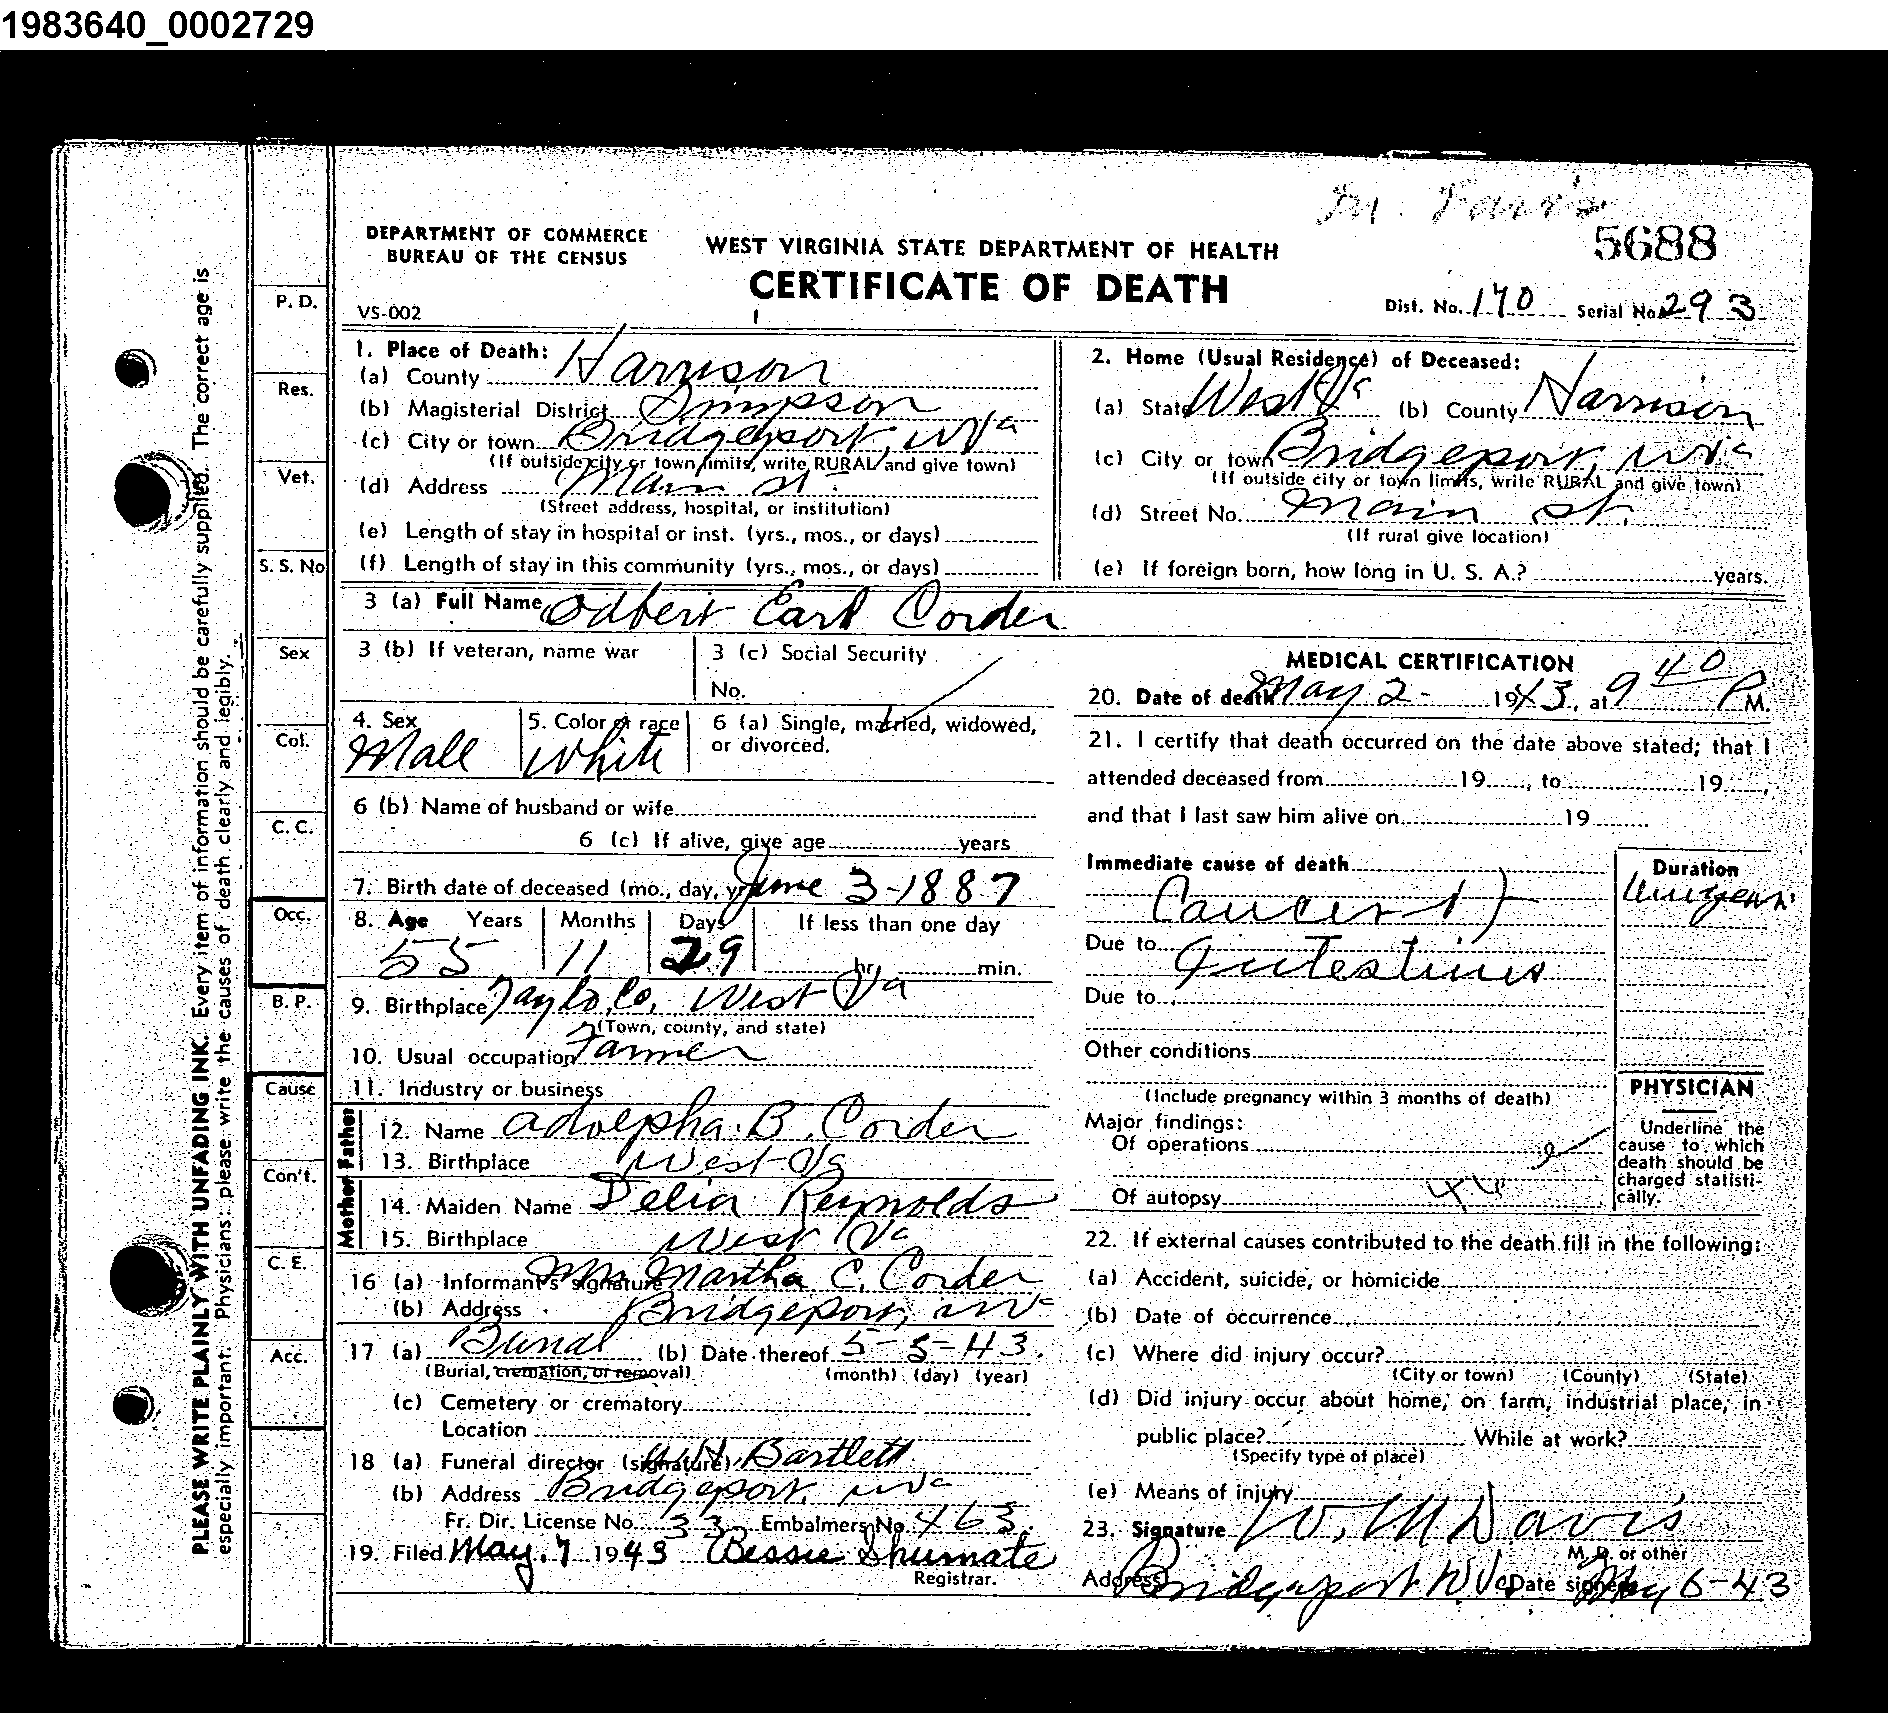 1983640_0002729
5688
DEPARTMENT OF COMMERCE
BUREAU OF THE CENSUS
WEST VIRGINIA STATE DEPARTMENT OF HEALTH
CERTIFICATE OF DEATH
VS-002
Dist. No. 170 Serial No. 293
PLEASE WRITE PLAINLY WITH UNFADING INK. Every item of information should be carefully supplied. The correct age is
especially important. Physicians: please write the causes of death clearly and legibly.
P. D.
Res.
Vet.
S. S. No
Sex
Col.
C. C.
Occ.
B. P.
Cause
Con't.
C. E.
Acc.
1. Place of Death:
(a) County Harrison
(b) Magisterial District Simpson
(c) City or town Bridgeport, WVa
(If outside city or town limits, write RURAL and give town)
(d) Address Main St.
(Street address, hospital, or institution)
(e) Length of stay in hospital or inst. (yrs., mos., or days)
(f) Length of stay in this community (yrs., mos., or days)
2. Home (Usual Residence) of Deceased:
(a) State West Va (b) County Harrison
(c) City or town Bridgeport, WVa
(If outside city or town limits, write RURAL and give town)
(d) Street No. Main St.
(If rural give location)
(e) If foreign born, how long in U. S. A.? years.
3 (a) Full Name Odbert Earl Corder
3 (b) If veteran, name war
3 (c) Social Security
No.
4. Sex
Male
5. Color or race
White
6 (a) Single, married, widowed,
or divorced.
6 (b) Name of husband or wife
6 (c) If alive, give age years
7. Birth date of deceased (mo., day, yr) June 3-1887
8. Age Years Months Days If less than one day
55 11 29 hr. min.
9. Birthplace Taylo. Co. West Va
(Town, county, and state)
10. Usual occupation Farmer
11. Industry or business
Father
12. Name Adolpha. B. Corder
13. Birthplace West Va
Mother
14. Maiden Name Delia Reynolds
15. Birthplace West Va
16 (a) Informant's signature Mrs Martha C. Corder
(b) Address Bridgeport, WVa
17 (a) Burial (b) Date thereof 5-5-43.
(Burial, cremation, or removal) (month) (day) (year)
(c) Cemetery or crematory
Location
18 (a) Funeral director (signature) Bartlett
(b) Address Bridgeport, WVa
Fr. Dir. License No. 33 Embalmers No. 463.
19. Filed May. 7 1943 Bessie Shumate
Registrar.
MEDICAL CERTIFICATION
20. Date of death May 2- 1943, at 9 40 P M.
21. I certify that death occurred on the date above stated; that I
attended deceased from 19 , to 19 ,
and that I last saw him alive on 19
Immediate cause of death
Duration
Cancer of
Due to Intestines
Due to
Other conditions
(Include pregnancy within 3 months of death)
Major findings:
Of operations
Of autopsy
PHYSICIAN
Underline the
cause to which
death should be
charged statisti-
cally.
22. If external causes contributed to the death fill in the following:
(a) Accident, suicide, or homicide
(b) Date of occurrence
(c) Where did injury occur?
(City or town) (County) (State)
(d) Did injury occur about home, on farm, industrial place, in
public place? While at work?
(Specify type of place)
(e) Means of injury
23. Signature W. M Davis
M. D. or other
Address Bridgeport WVa Date signed May 6-43